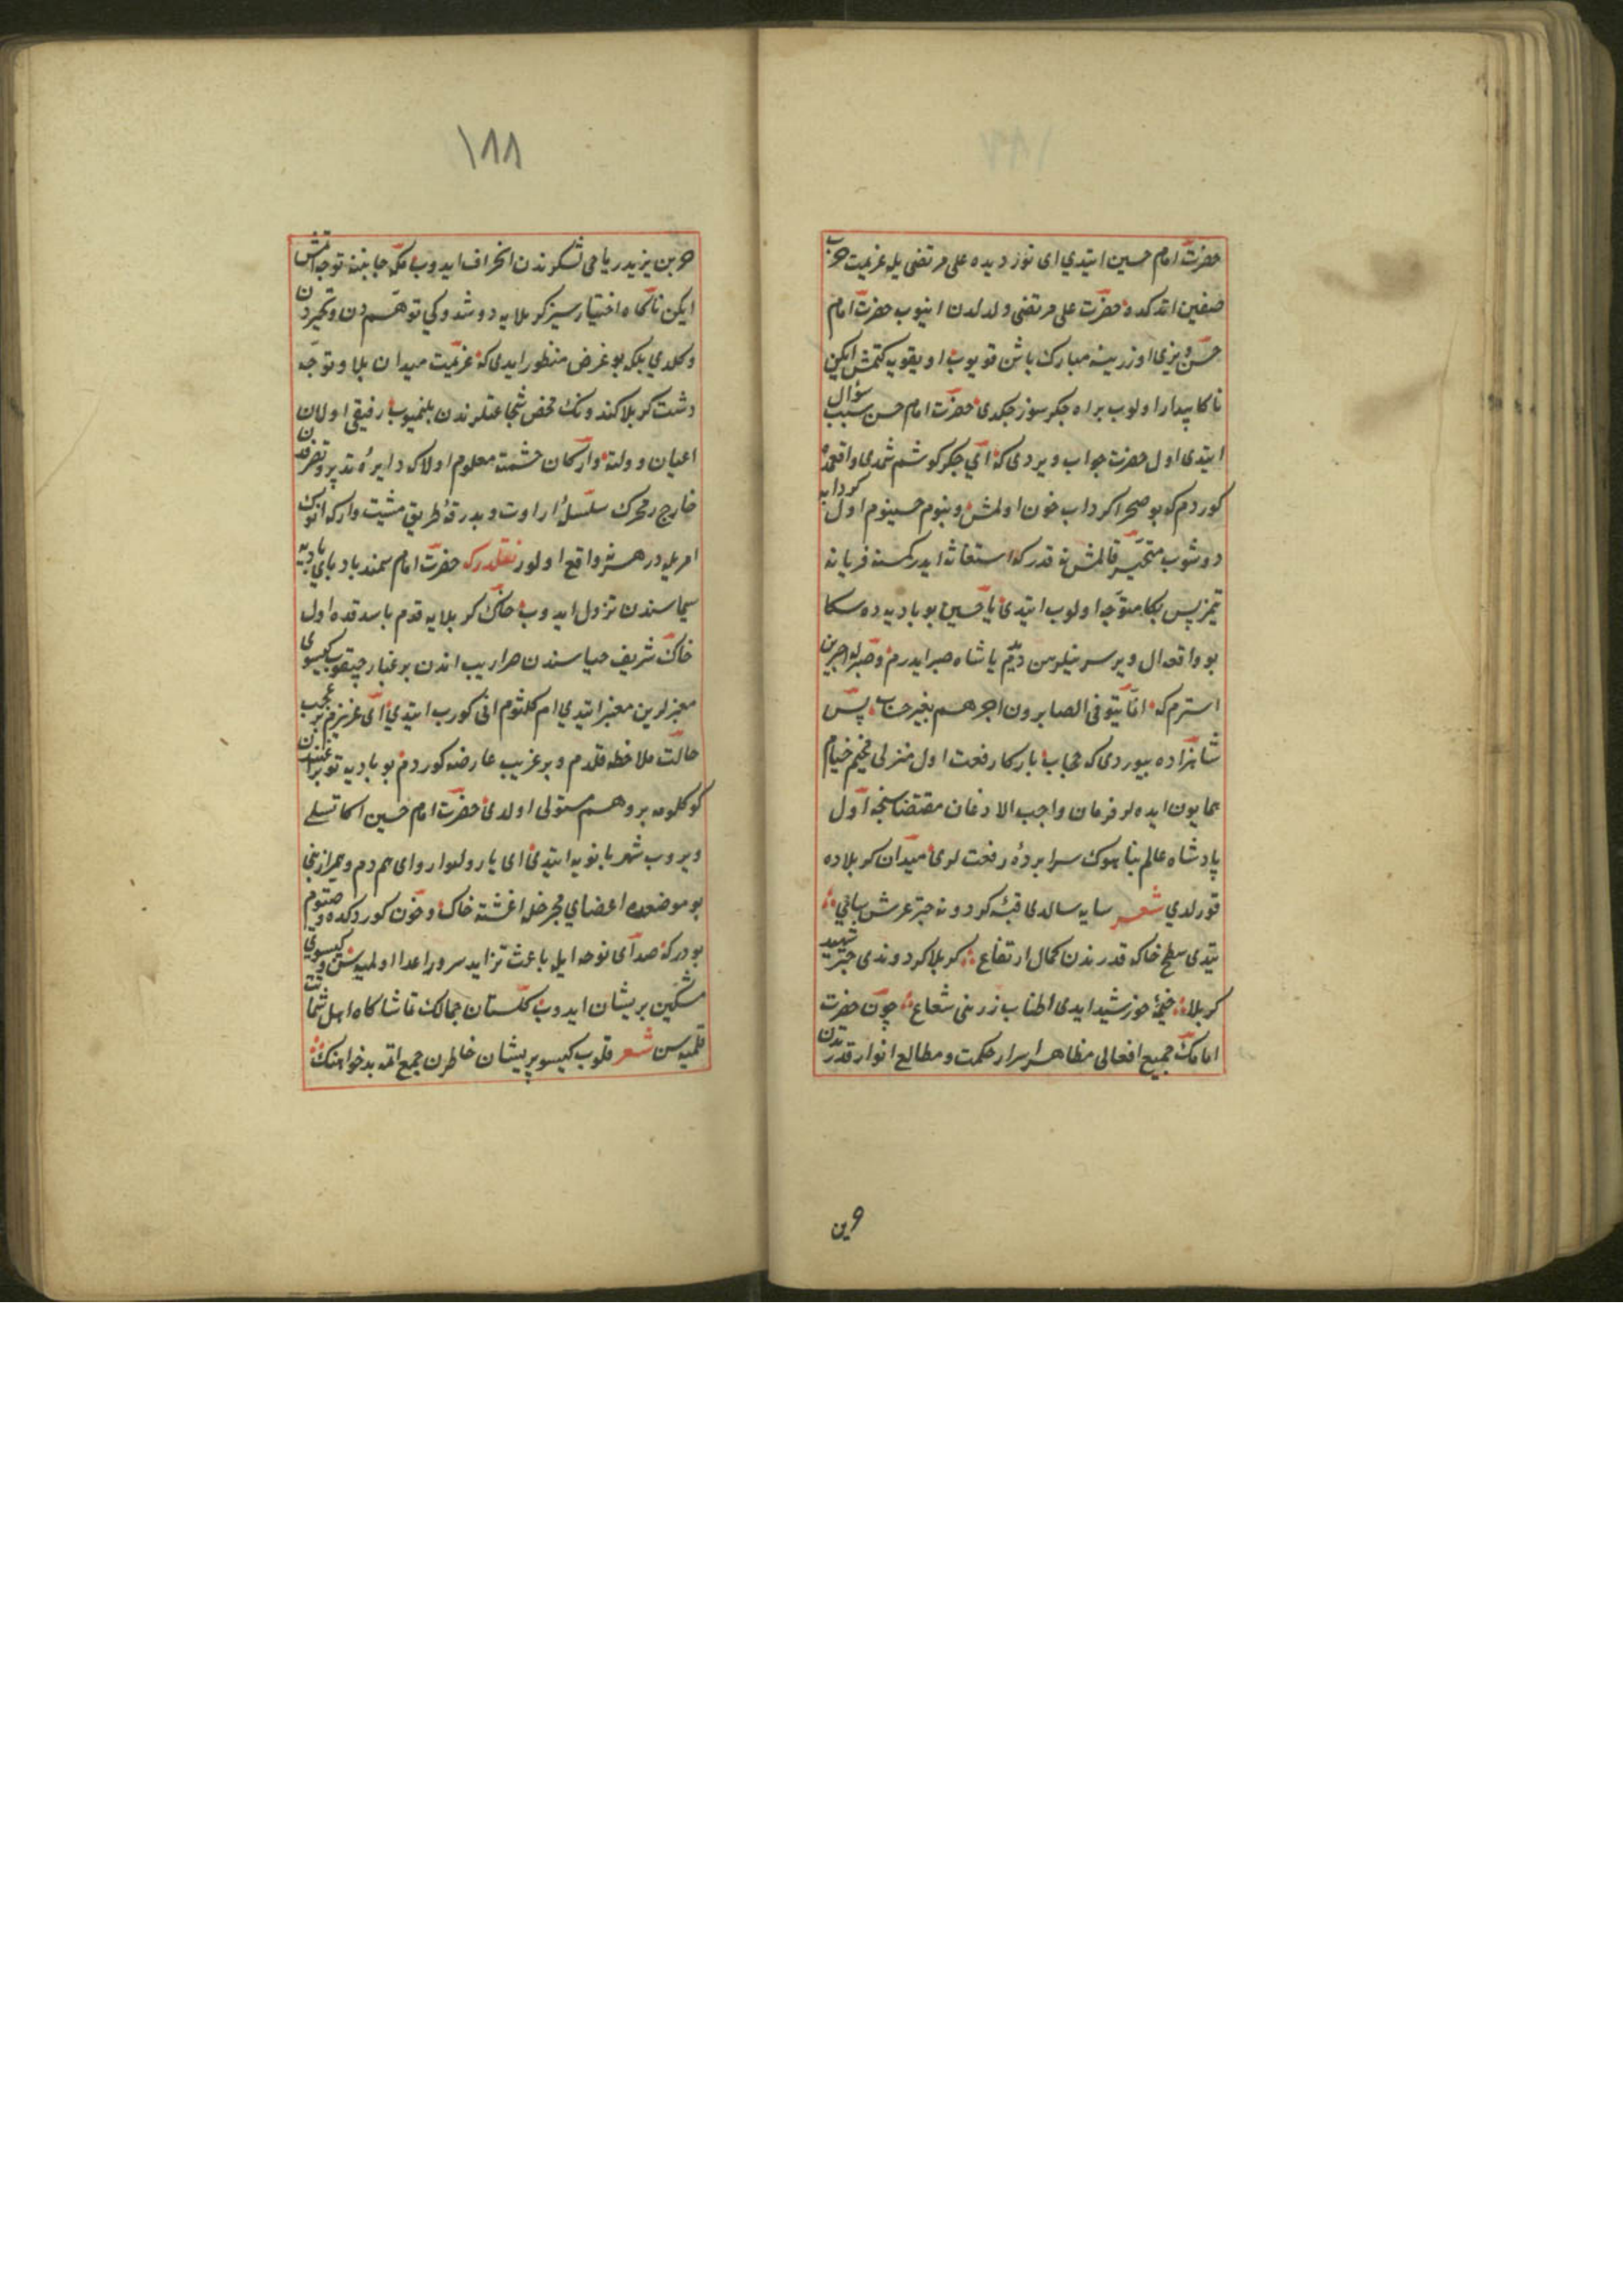 حضرت امام حسین ایتدی ای نور دیده علی مرتضی یله عزیمت حرب
صفین اتدکده حضرت علی مرتضی دلدلدن اینوب حضرت امام
حسن دیزی اوزرینه مبارک باشن قویوب اویقویه کتمش ایکن
ناکا بیدار اولوب بر اه جکرسوز چکدی حضرت امام حسن سبب سؤال
ایتدی اول حضرت جواب ویردی که ای جکر کوشم شمدی واقعمده
کوردم که بو صحرا کرداب خون اولمش و بنوم حسینوم اول کردابه
دوشوب متحیر قالمش نه قدر که استغاثه ایدر کمسنه فریادنه
یتمز پس بکا متوجه اولوب ایتدی یا حسین بو بادیه ده سکا
بو واقعه ال ویرسه نیلرسن دیدم یا شاه صبر ایدرم و صبرله اجرین
استرم که انما یتوفی الصابرون اجرهم بغیر حساب پس
شاهزاده بیوردی که حجاب بارکاه رفعت اول منزلی مخیم خیام
همایون ایده لر فرمان واجب الاذعان مقتضاسنجه اول
پادشاه عالم پناهوک سراپرده رفعت لری میدان کربلاده
قورلدی شعر سایه سالدی قبه کردونه چتر عرش سای
یتدی سطح خاکه قدرندن کمال ارتفاع کربلا کردوندی چتر شهید
کربلا خیمه خورشید ایدی اطناب زرینی شعاع چون حضرت
امامک جمیع افعالی مظاهر اسرار حکمت و مطالع انوار قدرتدن
حر بن
۱۸۸
حر بن یزید ریاحی لشکرندن انحراف ایدوب مکه جانبنه توجه اتمش
ایکن ناکاه اختیارسز کربلایه دوشدوکی توهم دن و تحیردن
دکلدی بلکه بو غرض منظور ایدی که عزیمت میدان بلا و توجه
دشت کربلا کندونک محض شجاعتلرندن بلنمیوب رفیقی اولان
اعیان دولته و ارکان حشمته معلوم اولا که دایره تدبیر و تصرفدن
خارج محرک سلسله ارادت و بدرقه طریق مشیت وار که انوک
امریله در هر نه واقع اولور نقلدر که حضرت امام سمند بادپای بادیه
سیماسندن نزول ایدوب خاک کربلایه قدم باسدقده اول
خاک شریف حیاسندن صرارییب اندن بر غبار چیقوب کیسوی
معنبرلرین مغبر ایتدی ام کلثوم انی کورب ایتدی ای عزیزم بر عجب
حالت ملاحظه قلدم و بر غریب عارضه کوردم بو بادیه توبراغندن
کوکلومه بر وهم مستولی اولدی حضرت امام حسین اکا تسلی
ویروب شهربانویه ایتدی ای یار دلنواز و ای همدم و همراز بنی
بو موضعده اعضای مجرحله اغشته خاک و خون کوردکده وصیتوم
بودر که صدای نوحه ایله باعث تزاید سرور اعدا اولمیه سن و کیسوی
مشکین پریشان ایدوب کلستان جمالک تماشاکاه اهل شماتت
قلمیه سن شعر قلوب کیسو پریشان خاطرن جمع اتمه بدخواهنک